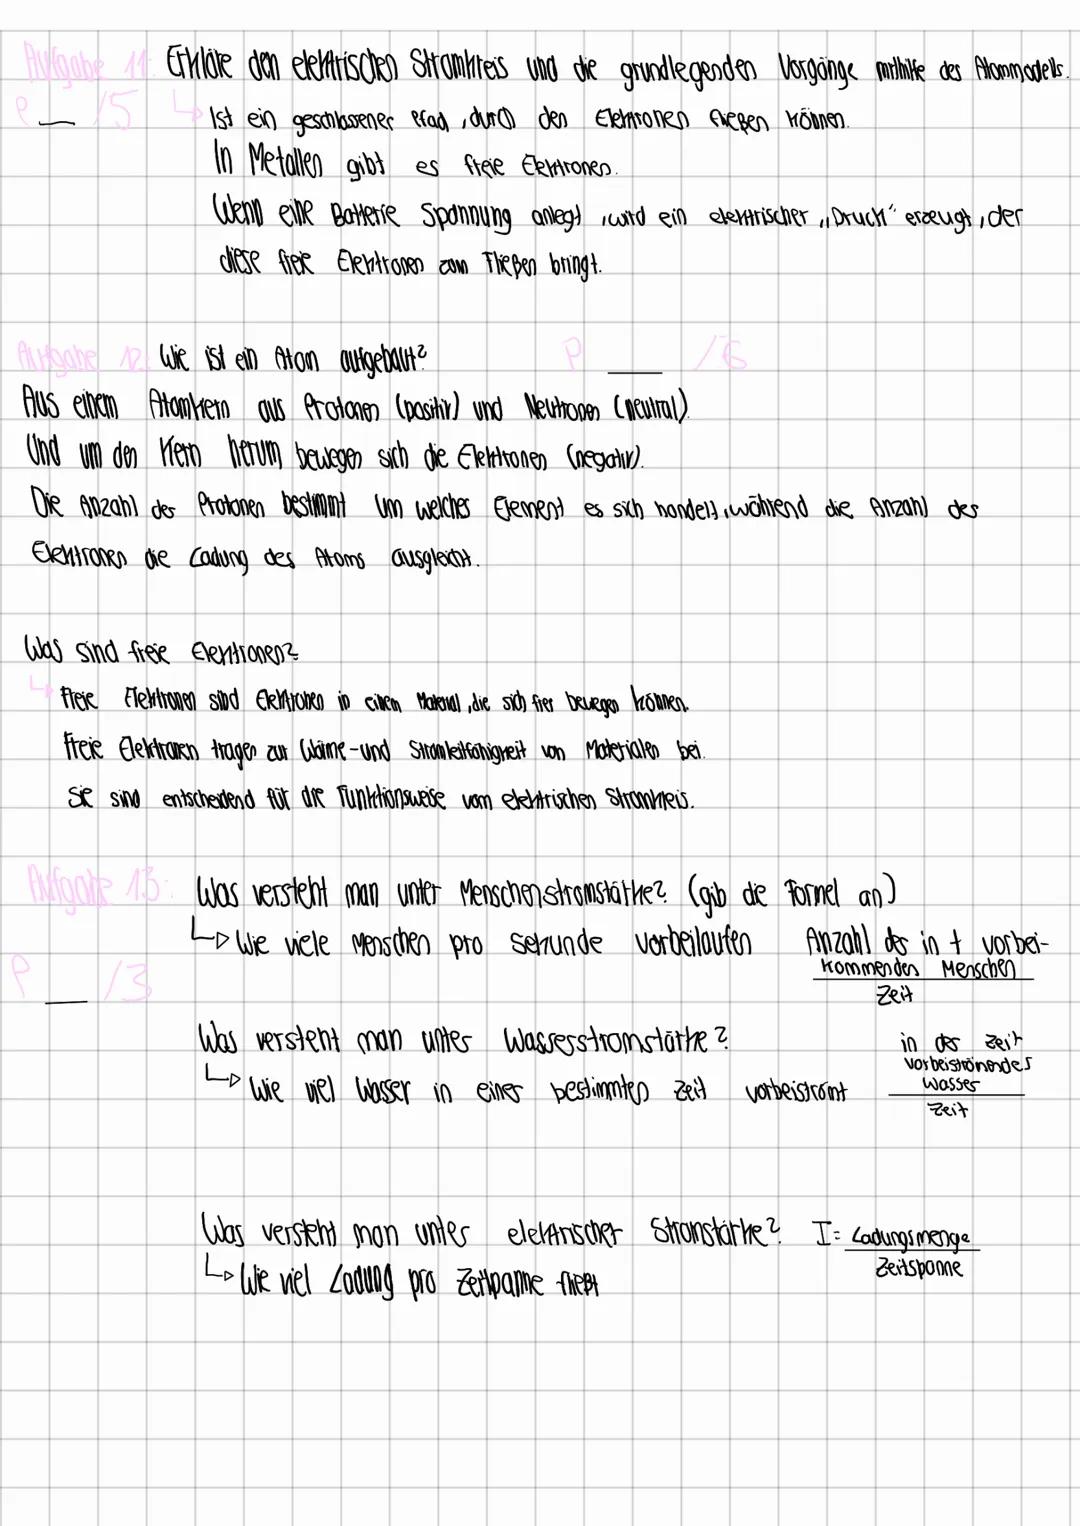 Aufgabe 11: Erkläre den elektrischen Stromkreis und die grundlegenden Vorgänge mithilfe des Atommodells.
P __ /5 ↳ Ist ein geschlossener Pfad, durch den Elektronen fließen können.
In Metallen gibt es freie Elektronen.
Wenn eine Batterie Spannung anlegt, wird ein elektrischer „Druck" erzeugt, der
diese freie Elektronen zum Fließen bringt.
Aufgabe 12: Wie ist ein Atom aufgebaut? P __ /6
Aus einem Atomkern aus Protonen (positiv) und Neutronen (neutral).
Und um den Kern herum bewegen sich die Elektronen (negativ).
Die Anzahl der Protonen bestimmt um welches Element es sich handelt, während die Anzahl der
Elektronen die Ladung des Atoms ausgleicht.
Was sind freie Elektronen?
↳ Freie Elektronen sind Elektronen in einem Material, die sich frei bewegen können.
Freie Elektronen tragen zur Wärme- und Stromleitfähigkeit von Materialen bei.
Sie sind entscheidend für die Funktionsweise vom elektrischen Stromkreis.
Aufgabe 13: Was versteht man unter Menschenstromstärke? (gib die Formel an)
↳ Wie viele Menschen pro Sekunde vorbeilaufen Anzahl der in t vorbei-
kommenden Menschen
P __ /3 Zeit
Was versteht man unter Wasserstromstärke?
in der Zeit
vorbeiströmendes
Wasser
↳ Wie viel Wasser in einer bestimmten Zeit vorbeiströmt
Zeit
Was versteht man unter elektrischer Stromstärke? I = Ladungsmenge
Zeitspanne
↳ Wie viel Ladung pro Zeitpanne fließt